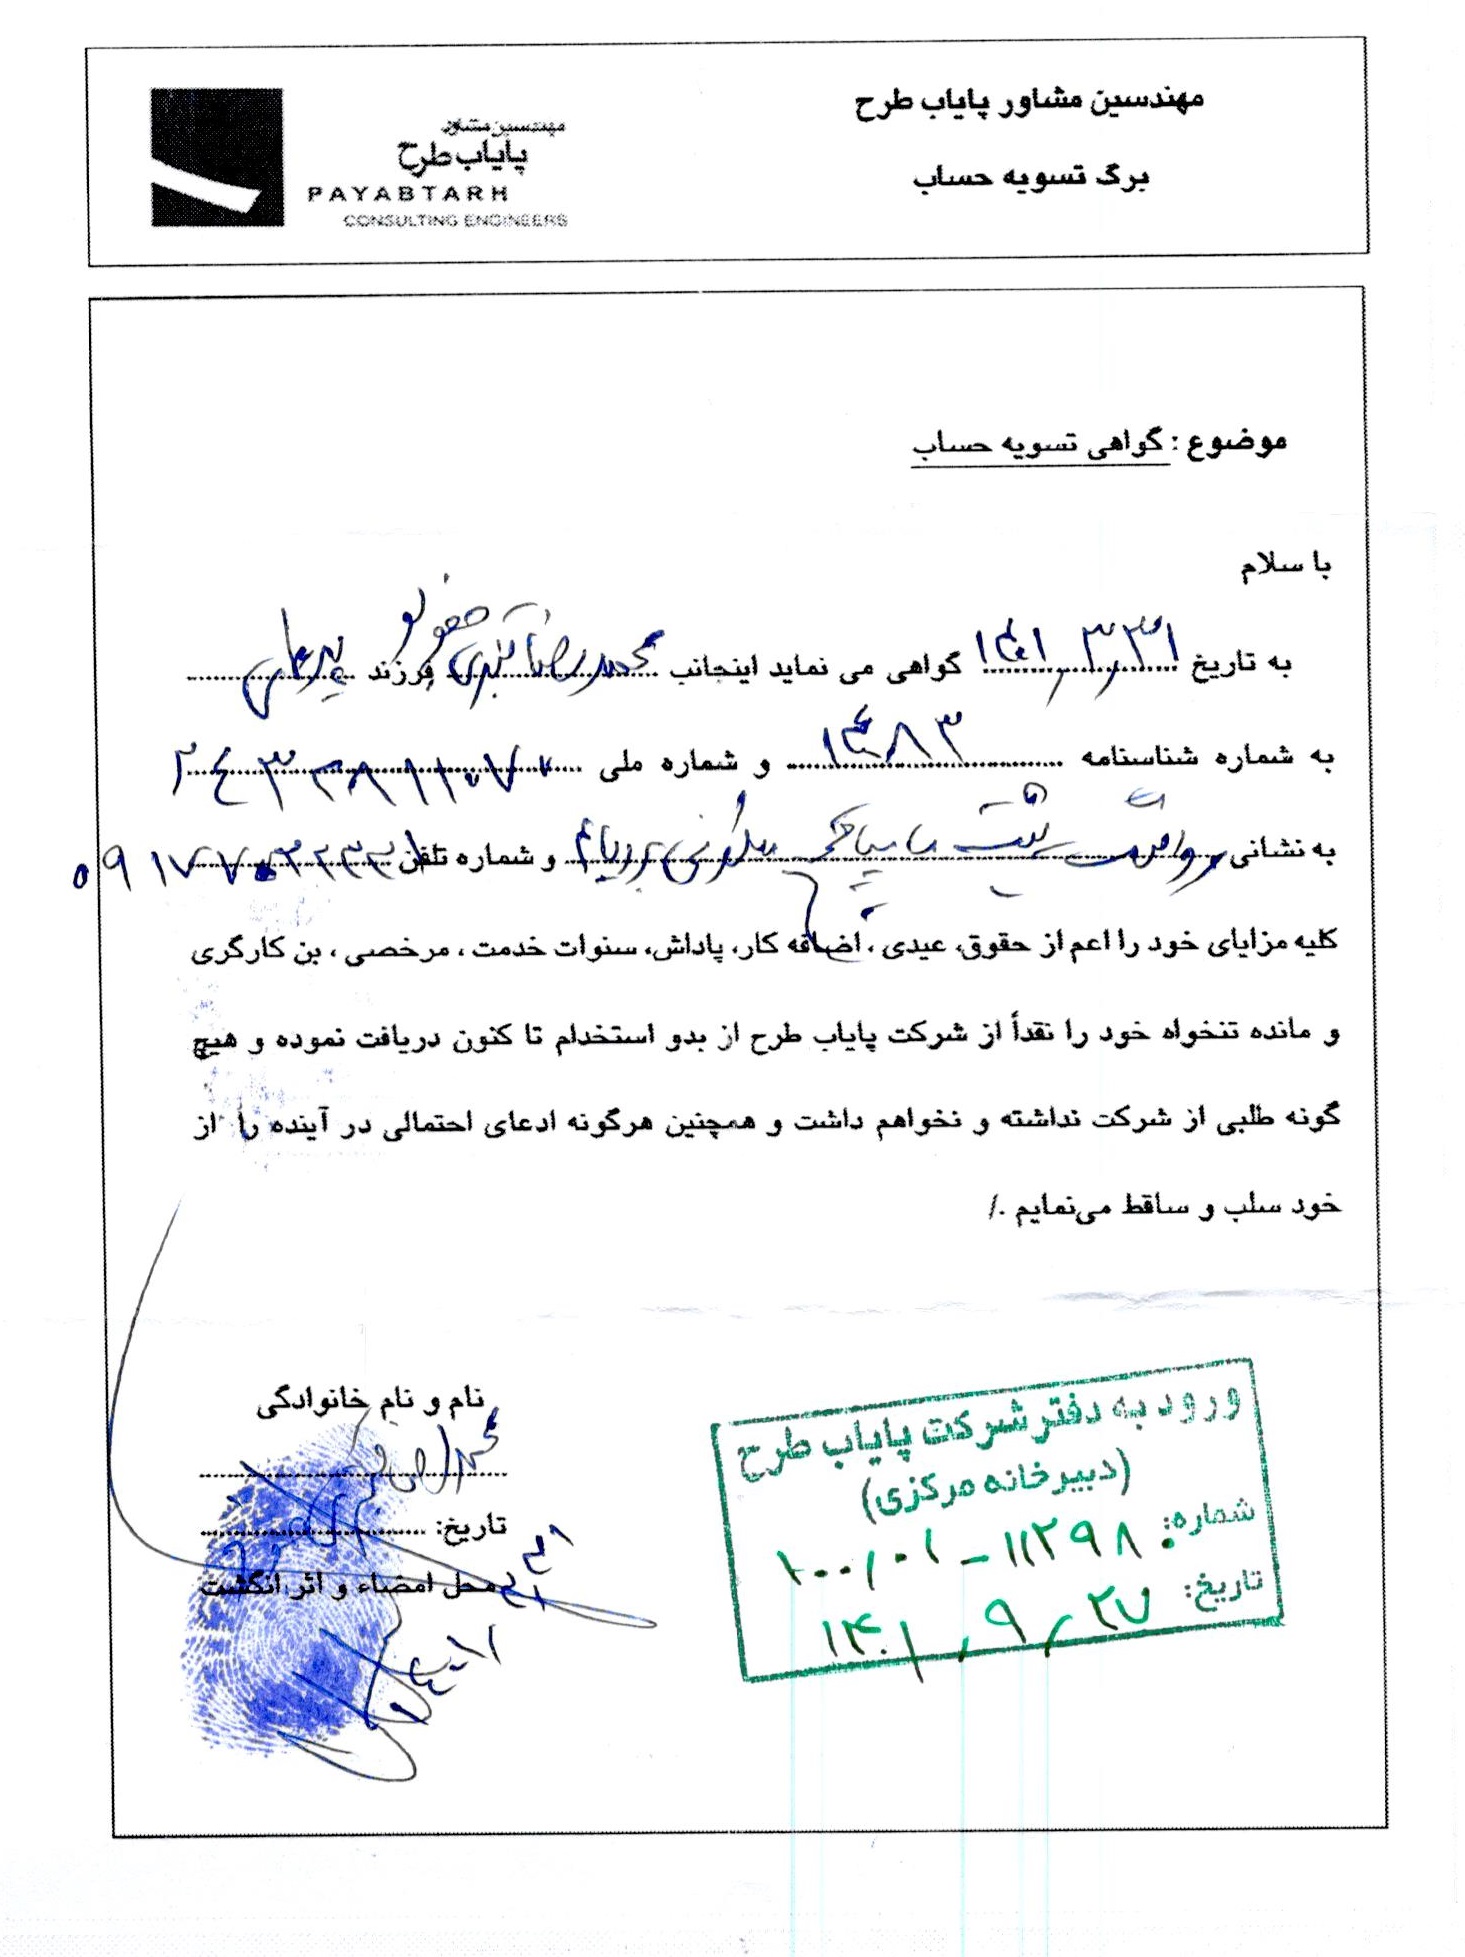 مهندسین مشاور پایاب طرح
برگ تسویه حساب
مهندسین مشاور
پایاب طرح
PAYABTARH
CONSULTING ENGINEERS
موضوع : گواهی تسویه حساب
با سلام
به تاریخ گواهی می نماید اینجانب محمدرضا فرزند
به شماره شناسنامه ۱۴۸۳ و شماره ملی
به نشانی و شماره تلفن
کلیه مزایای خود را اعم از حقوق، عیدی ، اضافه کار، پاداش، سنوات خدمت ، مرخصی ، بن کارگری
و مانده تنخواه خود را نقداً از شرکت پایاب طرح از بدو استخدام تا کنون دریافت نموده و هیچ
گونه طلبی از شرکت نداشته و نخواهم داشت و همچنین هرگونه ادعای احتمالی در آینده را از
خود سلب و ساقط می‌نمایم ./
نام و نام خانوادگی
محمدرضا
تاریخ:
محل امضاء و اثر انگشت
ورود به دفتر شرکت پایاب طرح
(دبیرخانه مرکزی)
شماره: ۱۰۰/۰۱ - ۱۱۲۹۸
تاریخ: ۱۴۰۱/۹/۲۷